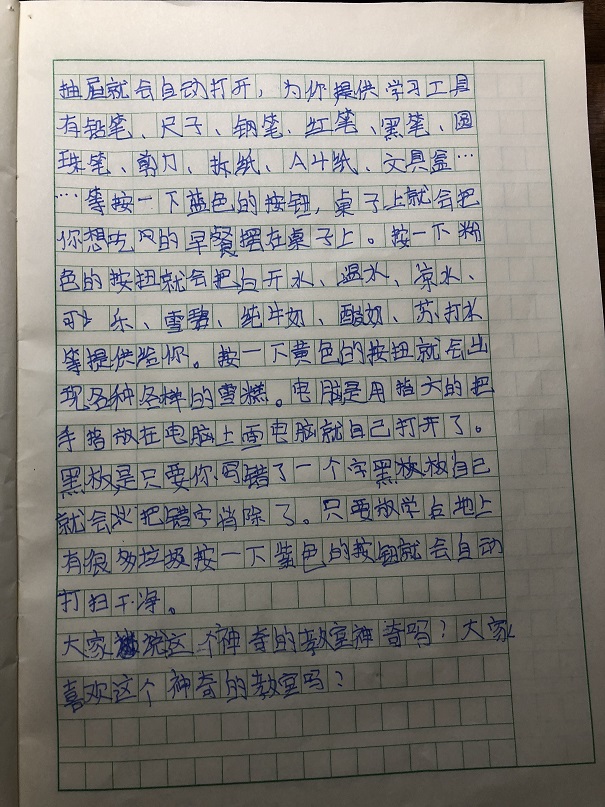 抽屉就会自动打开，为你提供学习工具
有铅笔、尺子、钢笔、红笔、黑笔、圆
珠笔、剪刀、拆纸、A4纸、文具盒…
…等按一下蓝色的按钮，桌子上就会把
你想吃的早餐摆在桌子上。按一下粉
色的按扭就会把白开水、温水、凉水、
可乐、雪碧、纯牛奶、酸奶、苏打水
等提供给你。按一下黄色的按扭就会出
现各种各样的雪糕。电脑是用指大的把
手指放在电脑上面电脑就自己打开了。
黑板是只要你写错了一个字黑板板自己
就会把错字消除了。只要放学后地上
有很多垃圾按一下紫色的按钮就会自动
打扫干净。
大家说这个神奇的教室神奇吗？大家
喜欢这个神奇的教室吗？